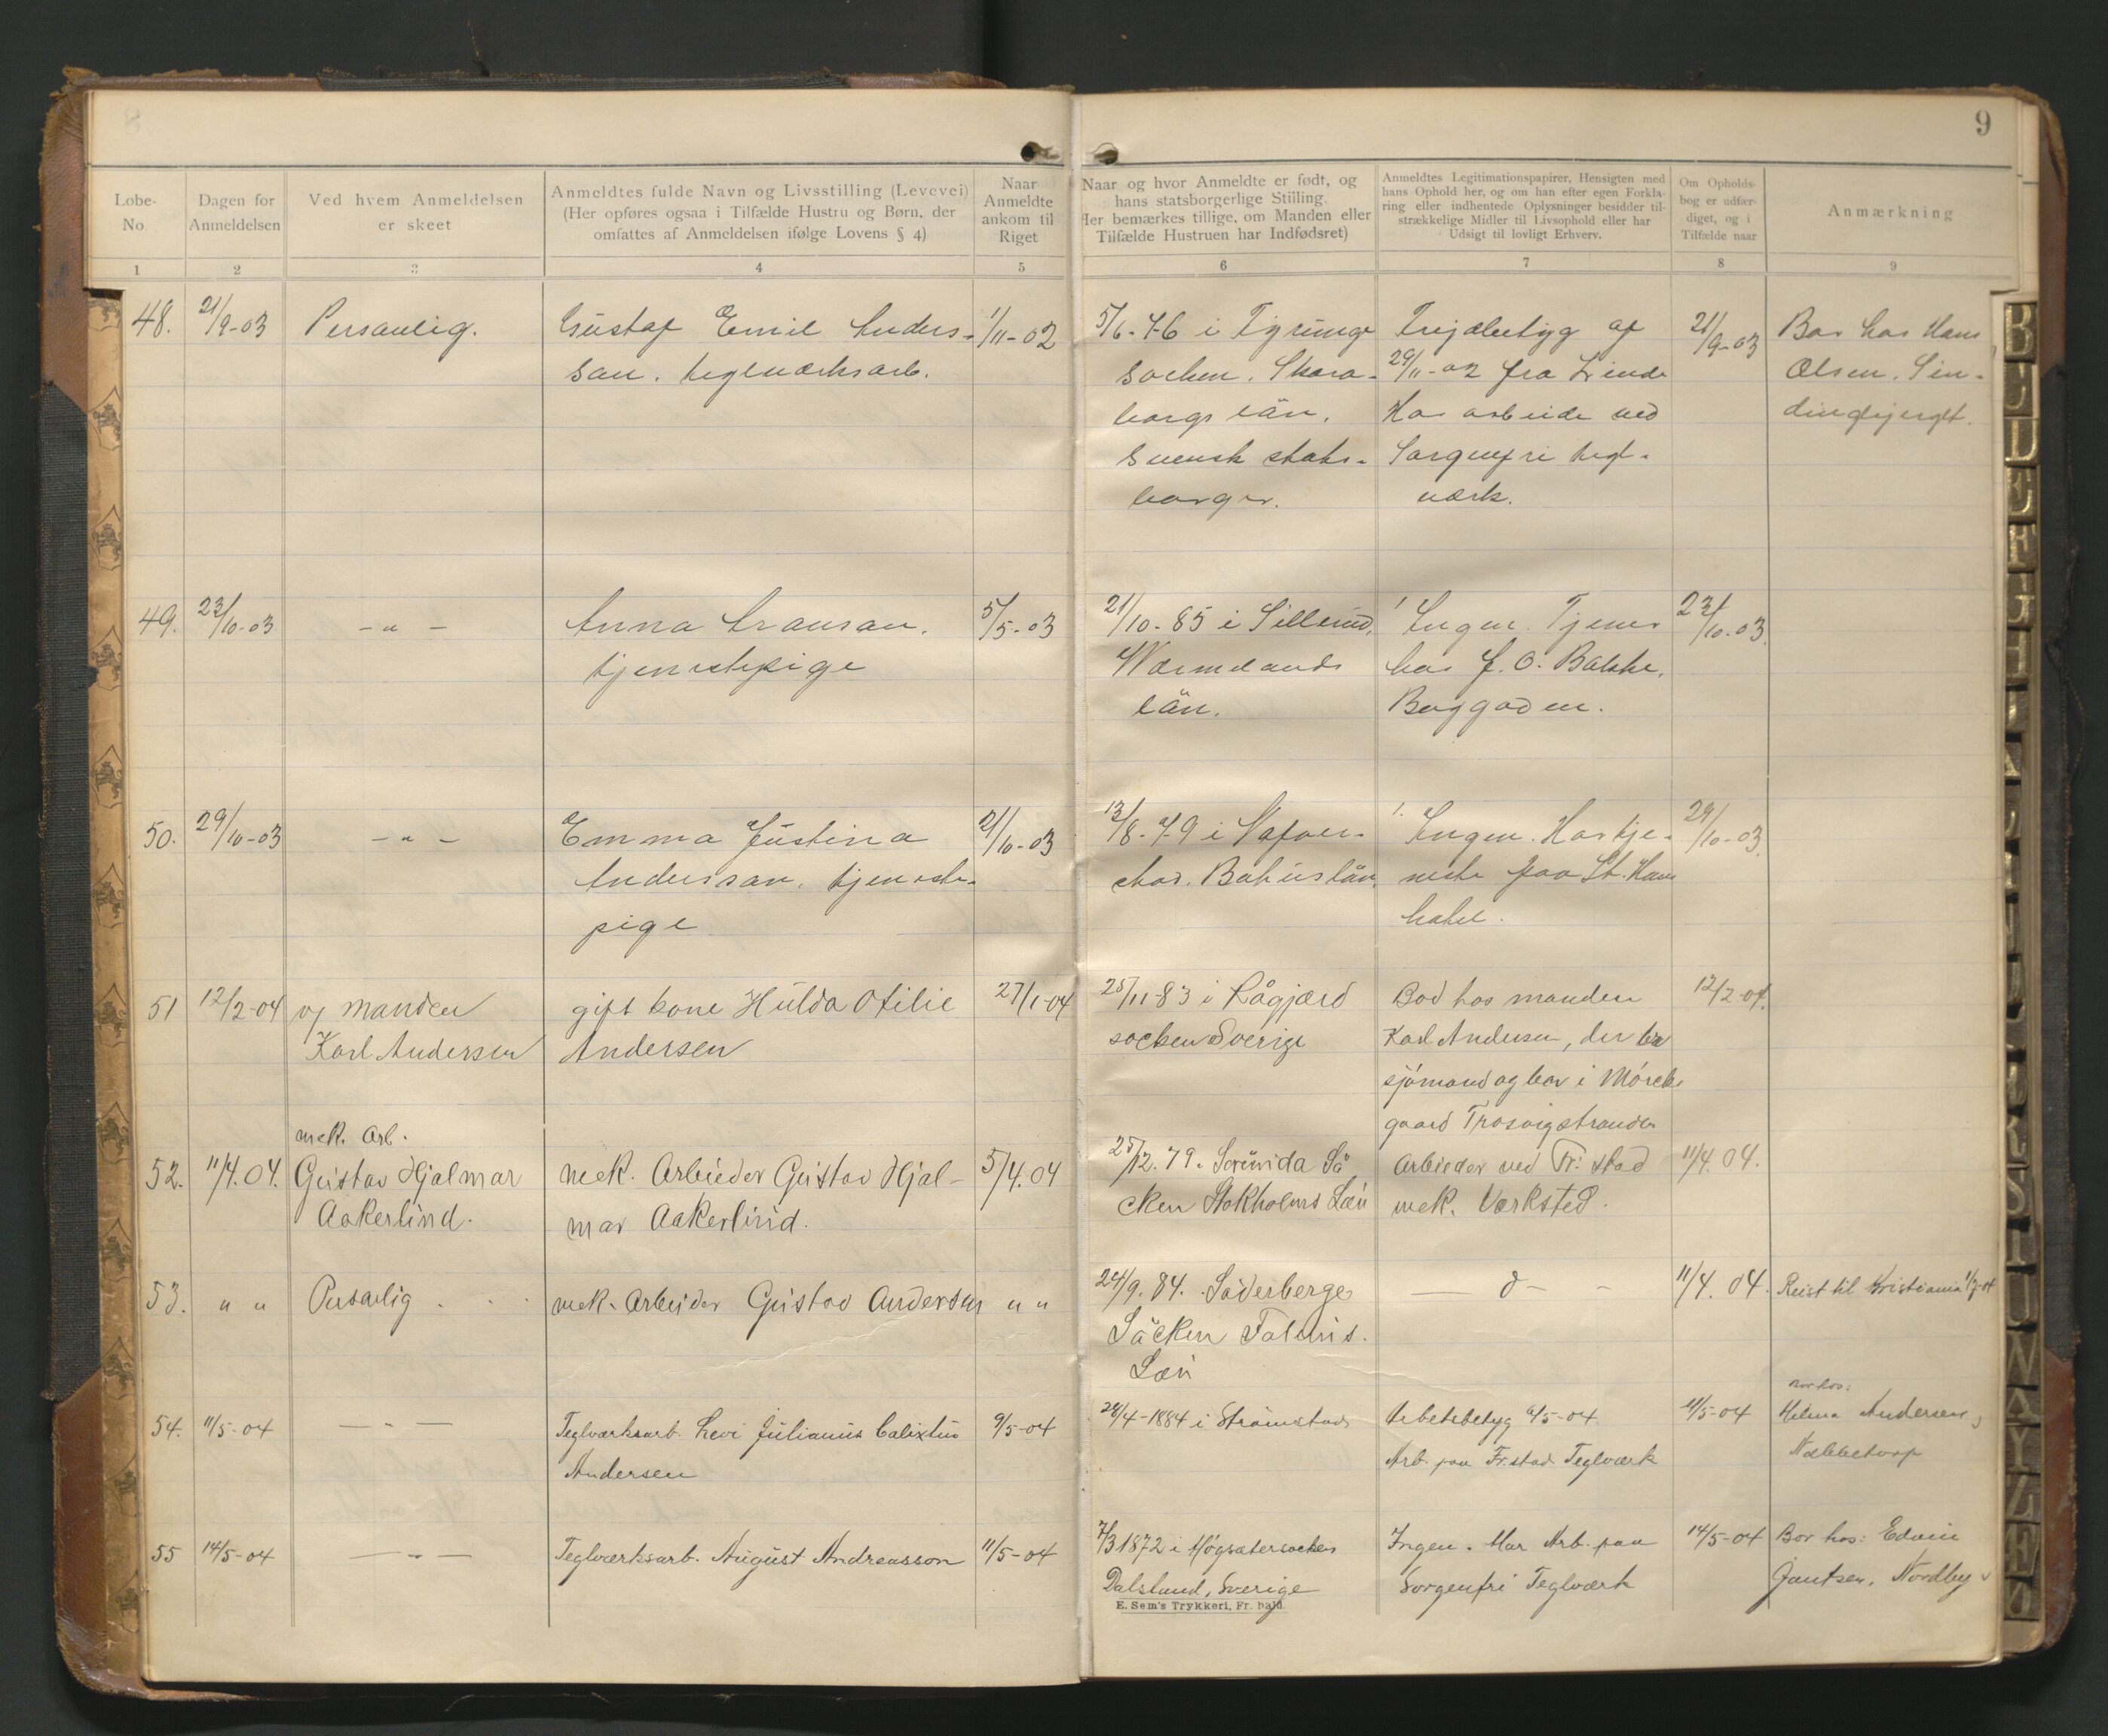 9
Løbe-
No
Dagen for
Anmeldelsen
Ved hvem Anmeldelsen
er skeet
Anmeldtes fulde Navn og Livsstilling (Levevei)
(Her opføres ogsaa i Tilfælde Hustru og Børn, der
omfattes af Anmeldelsen ifølge Lovens § 4)
Naar
Anmeldte
ankom til
Riget
Naar og hvor Anmeldte er født, og
hans statsborgerlige Stilling.
Her bemærkes tillige, om Manden eller
Tilfælde Hustruen har Indfødsret)
Anmeldtes Legitimationspapirer, Hensigten med
hans Ophold her, og om han efter egen Forkla-
ring eller indhentede Oplysninger besidder til-
strækkelige Midler til Livsophold eller har
Udsigt til lovligt Erhverv.
Om Opholds-
bog er udfær-
diget, og i
Tilfælde naar
Anmærkning
1 2 3 4 5 6 7 8 9
48.
21/9-03
Personlig.
Gustaf Emil Anders-
son. teglværksarb.
1/11-02
5/6-76 i
socken. Skara-
borgs län.
Svensk stats-
borger.
af
29/11-02 fra
Har arbeide ved
Sorgenfri tegl-
værk.
21/9-03
Bor hos Hans
Olsen. Sin-
dingbjerget.
49.
23/10-03
-"-
Anna Aronson.
tjenestepige
5/5-03
21/10-85 i Sillerud,
Wärmlands
län.
Ingen. Tjener
hos J. O. Bakke.
Baggaden.
23/10-03.
50.
29/10-03
-"-
Emma Justina
Anderson. tjeneste-
pige
21/10-03
13/8-79 i
Bahuslän.
Ingen. Har tje-
neste paa St. Hans
hotel.
29/10-03.
51
12/2-04
og manden
Karl Andersen
gift kone Hulda Otilie
Andersen
27/1-04
25/11-83 i Rågjærd
socken Sverige
Bod hos manden
Karl Andersen, der
sjömand og bor i
gaard Trosvigstranden
12/2-04.
52.
11/4.04.
mek. Arb.
Gustav Hjalmar
Aakerlind.
mek. Arbeider Gustav Hjal-
mar Aakerlind.
5/4.04
25/12.79. Sorunda Sä
cken Stokholms Læn
Arbeider ved Fr: stad
mek. Værksted.
11/4.04.
53.
" "
Personlig
mek. Arbeider Gustav Andersen
" "
24/9.84. Söderberge
Säcken Faluns.
Læn
— d — -
11/4.04.
Reist til Kristiania 1/7-04
54.
11/5-04
— " —
Teglværksarb. Levi Julianus Calixtus
Andersen
9/5-04
28/4-1884 i Strömstad
Arbetsbetyg 6/5-04
Arb. paa Fr.stad Teglværk
11/5-04
Bor hos:
Helma Andersen,
Nabbetorp
55
14/5-04
— " —
Teglværksarb. August Andreasson
11/5-04
7/3 1872 i Högsätersocken
Dalsland, Sverige
Ingen. Har Arb. paa
Sorgenfri Teglværk
14/5-04
Bor hos: Edvin
Jantsen, Nordby
E. Sem's Trykkeri, Fr. hald.
B